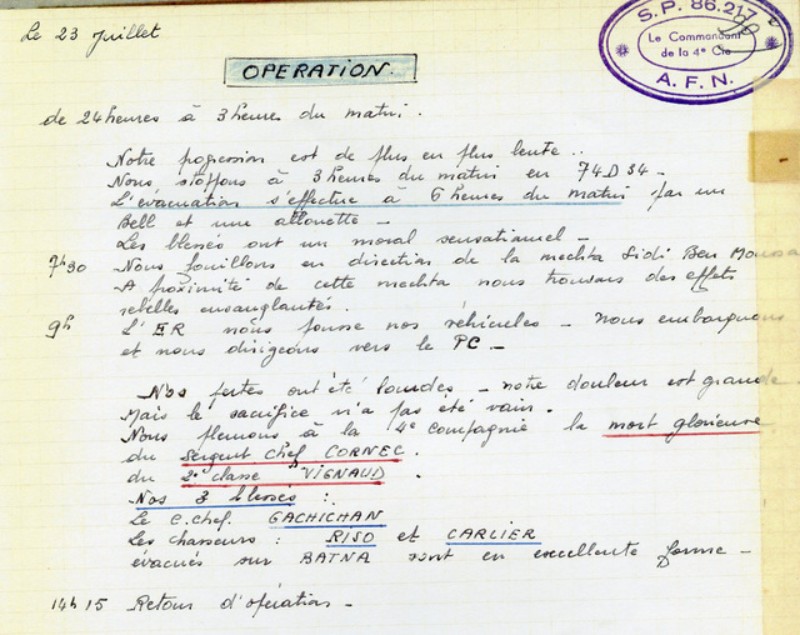 Le 23 Juillet
S.P. 86.217
Le Commandant
de la 4e Cie
A.F.N.
OPERATION.
de 24 heures à 3 heures du matin.
Notre progression est de plus en plus lente..
Nous stoppons à 3 heures du matin en 74 D 34 -
L'évacuation s'effectue à 6 heures du matin par un
Bell et une allouette -
Les blessés ont un moral sensationnel -
7h30 Nous fouillons en direction de la mechta Sidi Ben Moussa
A proximité de cette mechta nous trouvons des effets
rebelles ensanglantés.
9h L'ER nous pousse nos véhicules - nous embarquons
et nous dirigeons vers le PC -
Nos pertes ont été lourdes - notre douleur est grande.
Mais le sacrifice n'a pas été vain.
Nous pleurons à la 4e compagnie la mort glorieuse
du Sergent Chef CORNEC.
du 2e classe VIGNAUD.
Nos 3 blessés :
Le C.Chef. GACHICHAN
Les chasseurs : RISO et CARLIER
évacués sur BATNA sont en excellente forme -
14h15 Retour d'opération -